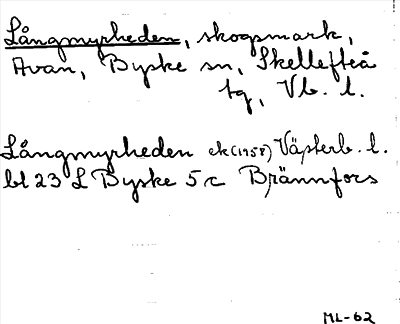 Långmyrheden, skogsmark,
Avan, Byske sn, Skellefteå
tg, Vb. l.
Långmyrheden ek(1958) Västerb. l.
bl 23 L Byske 5 c Brännfors
ML-62